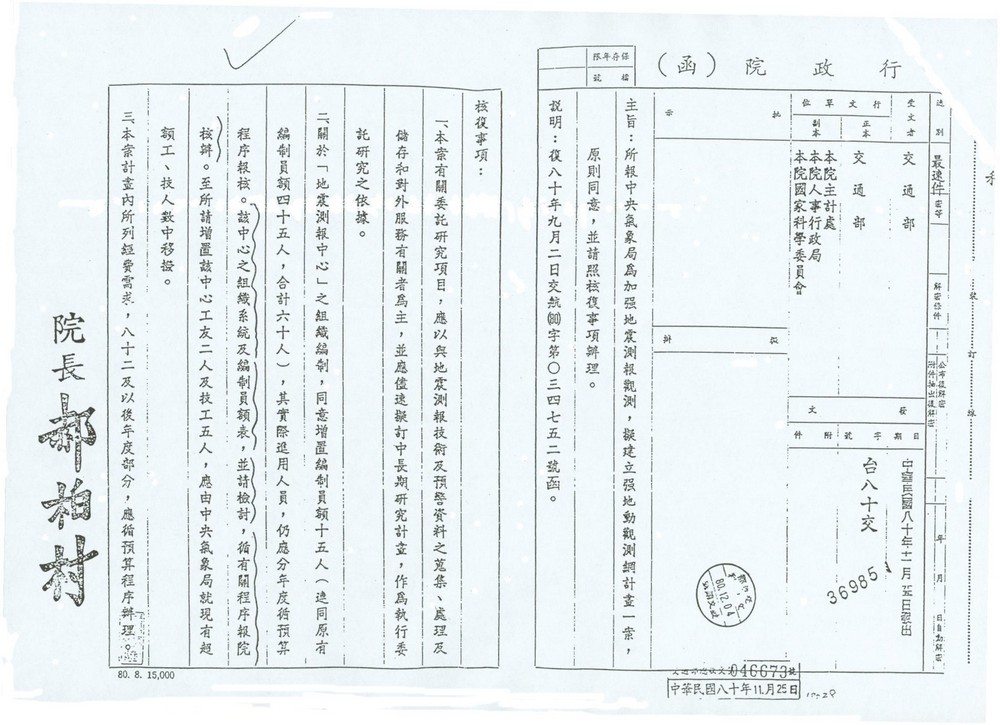 行政院（函）
保存年限
檔號
速別
最速件
密等
解密條件
公布後解密
附件抽出後解密
年月日自動解密
裝訂線
受文者
交通部
行文單位
正本
交通部
副本
本院主計處
本院人事行政局
本院國家科學委員會
發文
日期
字號
附件
中華民國八十年十一月廿五日發出
台八十交
36985
批示
擬辦
主旨：所報中央氣象局為加强地震測報觀測，擬建立强地動觀測網計畫一案，
原則同意，並請照核復事項辦理。
説明：復八十年九月二日交航(80)字第〇三四七五二號函。
80.12.04
046673號
中華民國八十年11月25日
核復事項：
一、本案有關委託研究項目，應以與地震測報技術及預警資料之蒐集、處理及
儲存和對外服務有關者為主，並應儘速擬訂中長期研究計畫，作為執行委
託研究之依據。
二、關於「地震測報中心」之組織編制，同意增置編制員額十五人（連同原有
編制員額四十五人，合計六十人），其實際進用人員，仍應分年度循預算
程序報核。該中心之組織系統及編制員額表，並請檢討，循有關程序報院
核辦。至所請增置該中心工友二人及技工五人，應由中央氣象局就現有超
額工、技人數中移撥。
三、本案計畫內所列經費需求，八十二及以後年度部分，應循預算程序辦理。
院長郝柏村
80. 8. 15,000